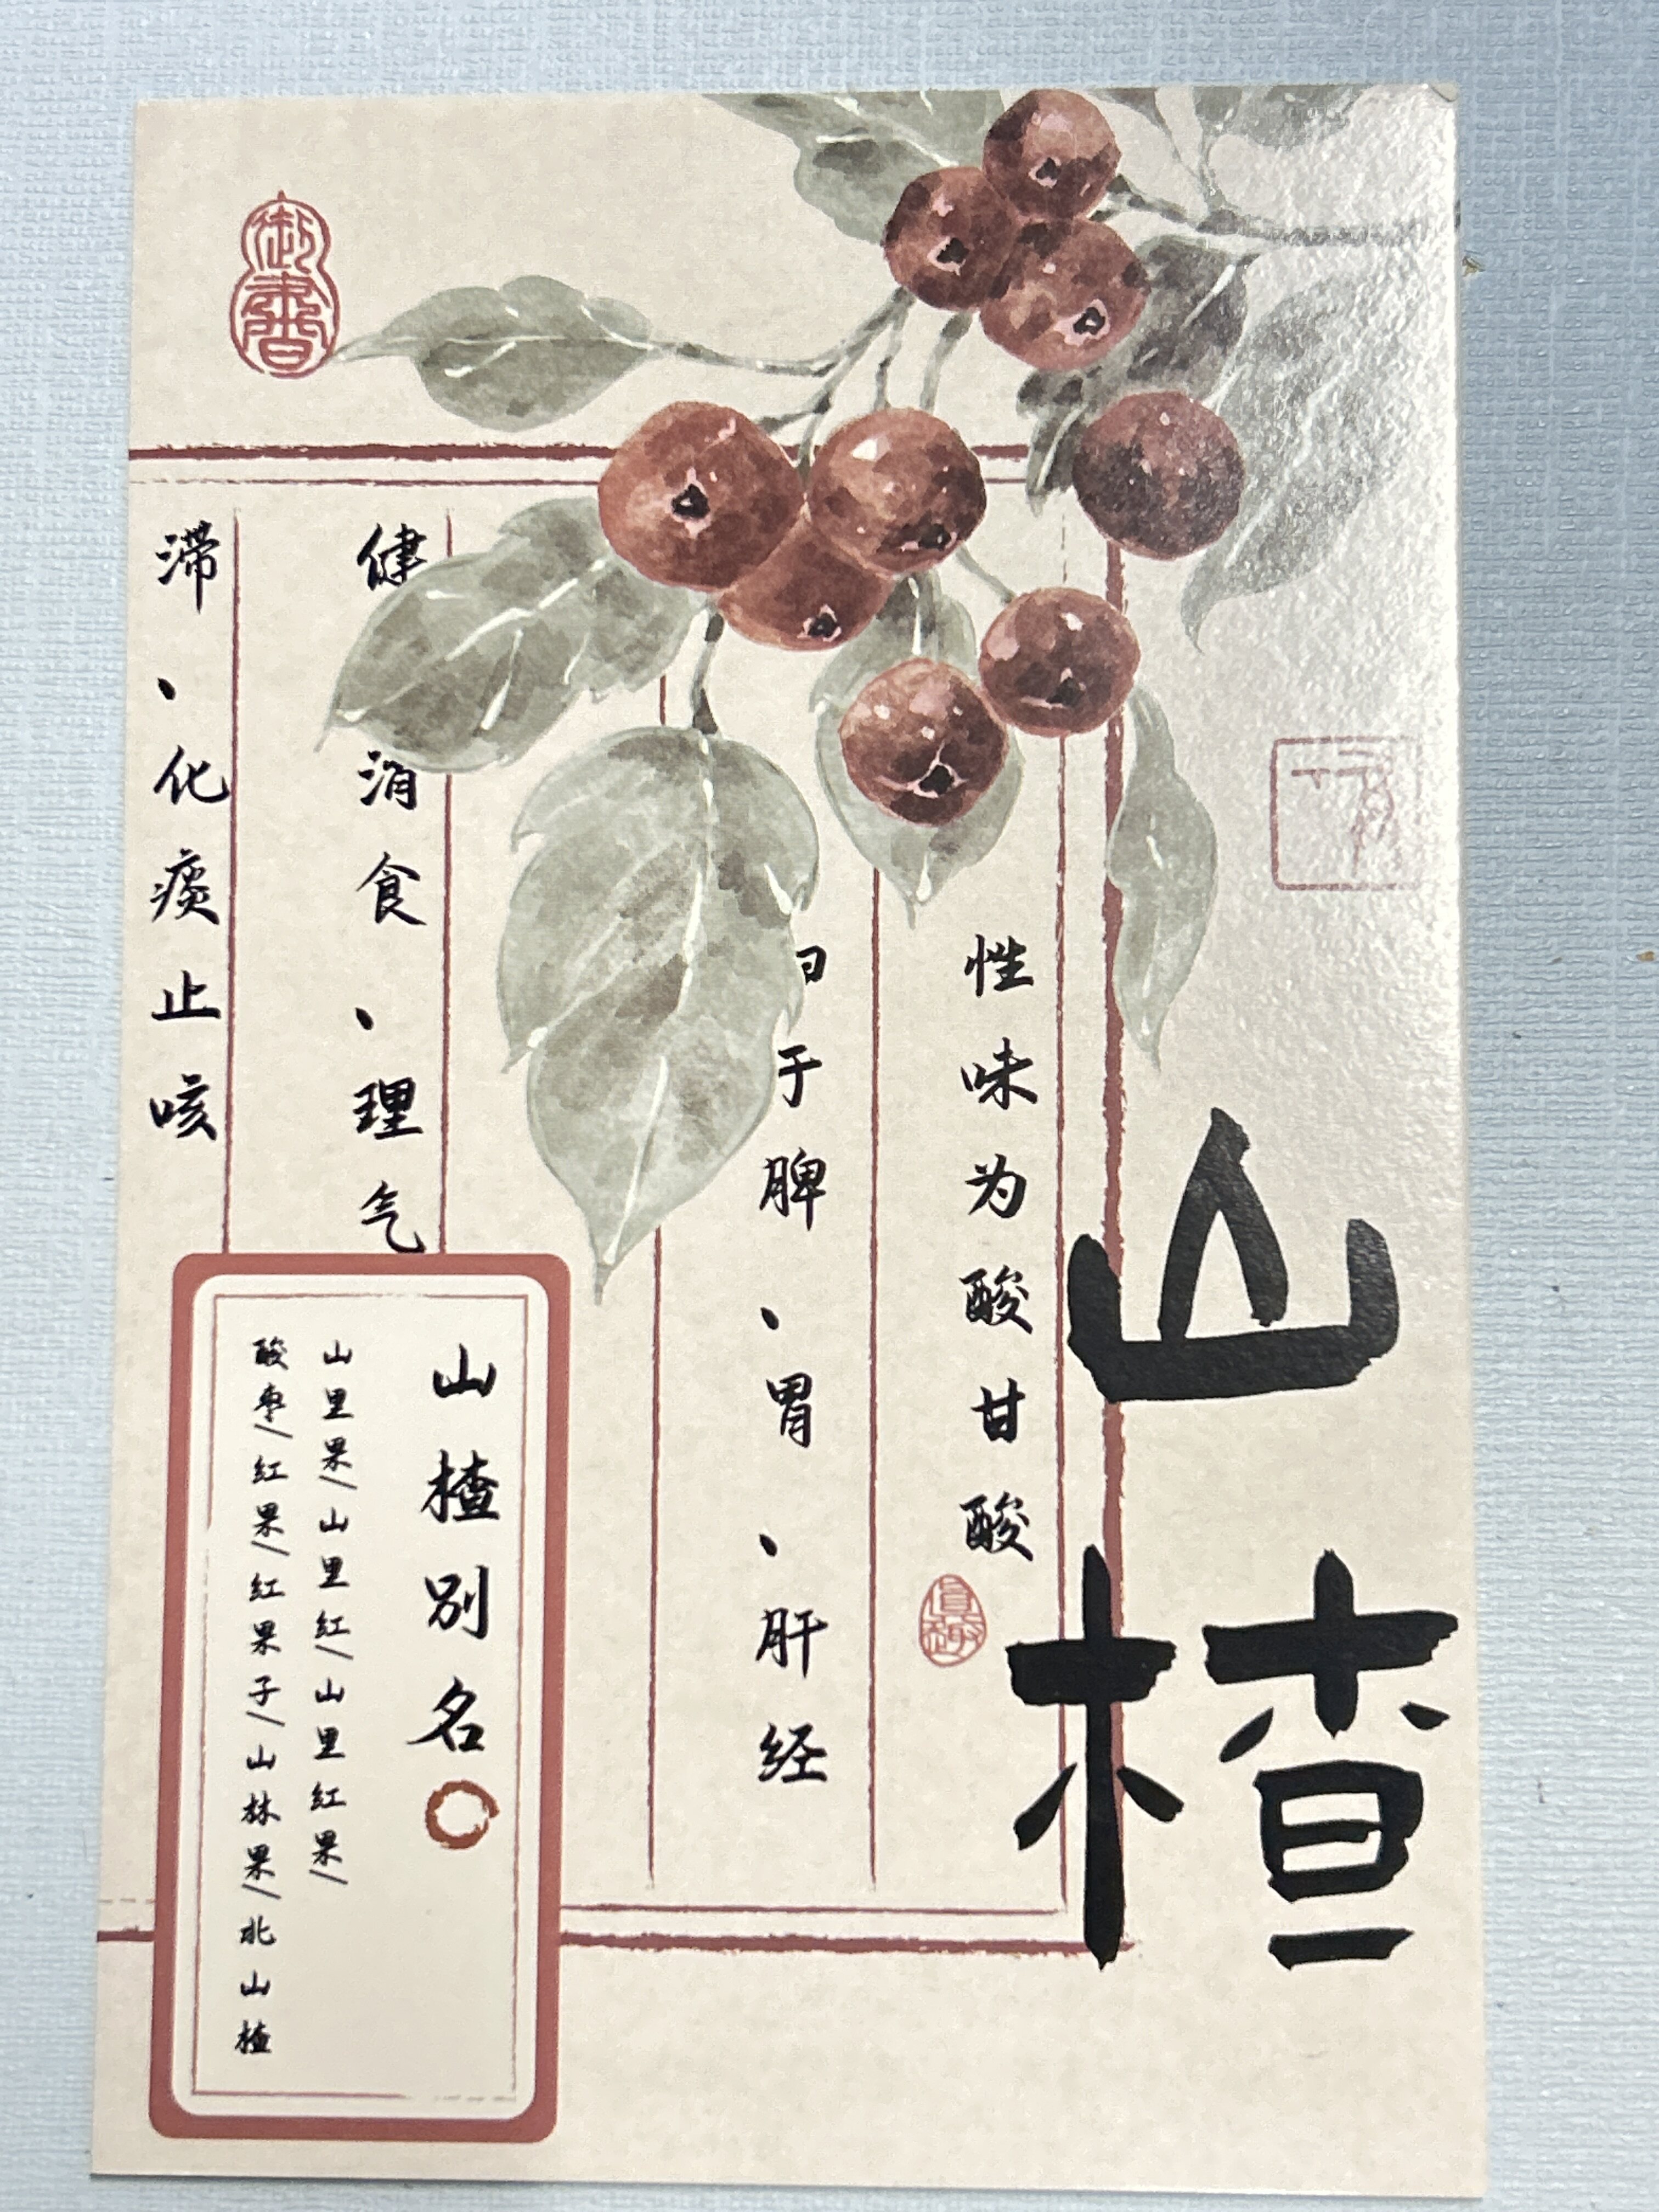 山楂
性味为酸甘酸
于脾、胃、肝经
健
消食、理气
滞、化痰止咳
山楂别名
山里果/山里红/山里红果/
酸枣/红果/红果子/山林果/北山楂